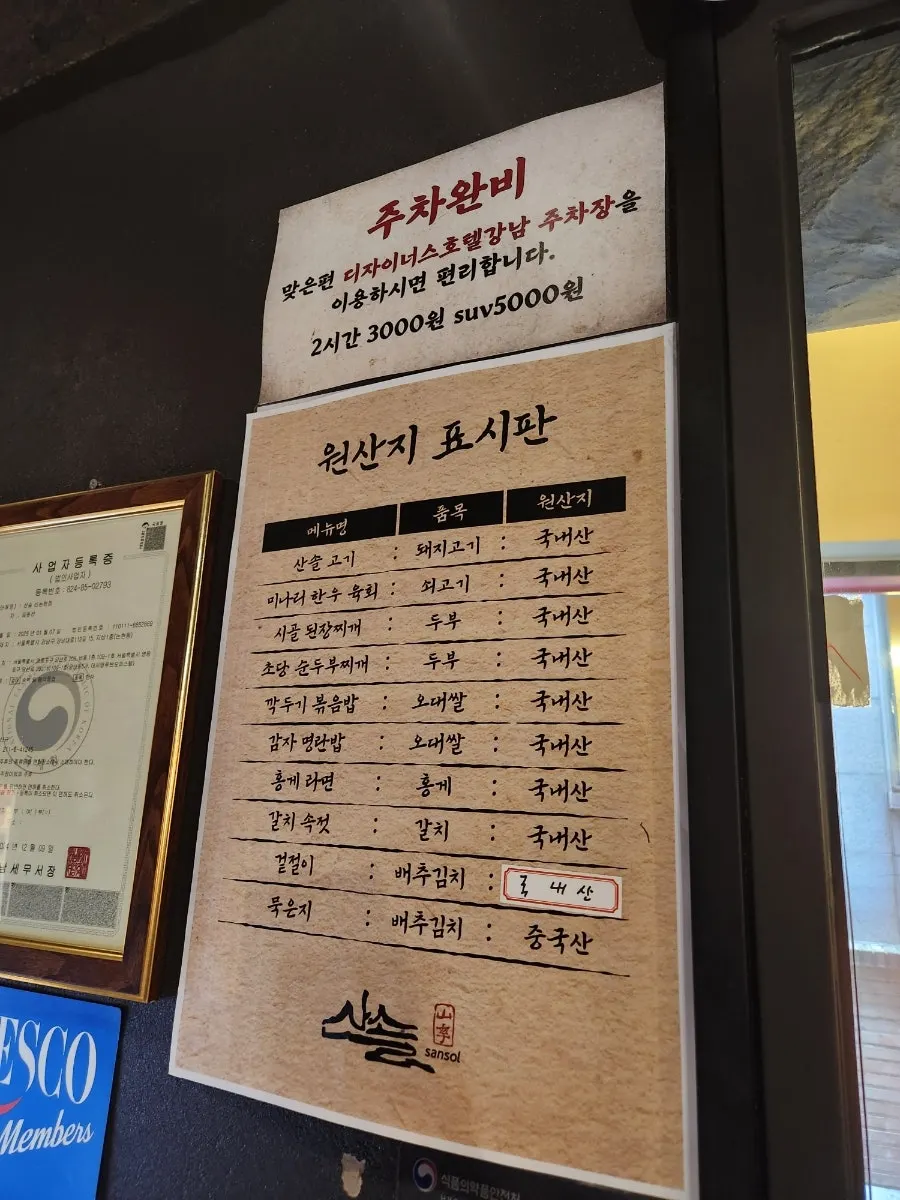 주차완비
맞은편 디자이너스호텔강남 주차장을
이용하시면 편리합니다.
2시간 3000원 suv5000원
원산지 표시판
메뉴명 품목 원산지
산솔 고기 : 돼지고기 : 국내산
미나리 한우 육회 : 쇠고기 : 국내산
시골 된장찌개 : 두부 : 국내산
초당 순두부찌개 : 두부 : 국내산
깍두기 볶음밥 : 오대쌀 : 국내산
감자 명란밥 : 오대쌀 : 국내산
홍게 라면 : 홍게 : 국내산
갈치 속젓 : 갈치 : 국내산
겉절이 : 배추김치 : 국내산
묵은지 : 배추김치 : 중국산
산솔
sansol
사업자등록증
( 법인사업자 )
등록번호 : 824-85-02793
세무서장
ESCO
Members
식품의약품안전처